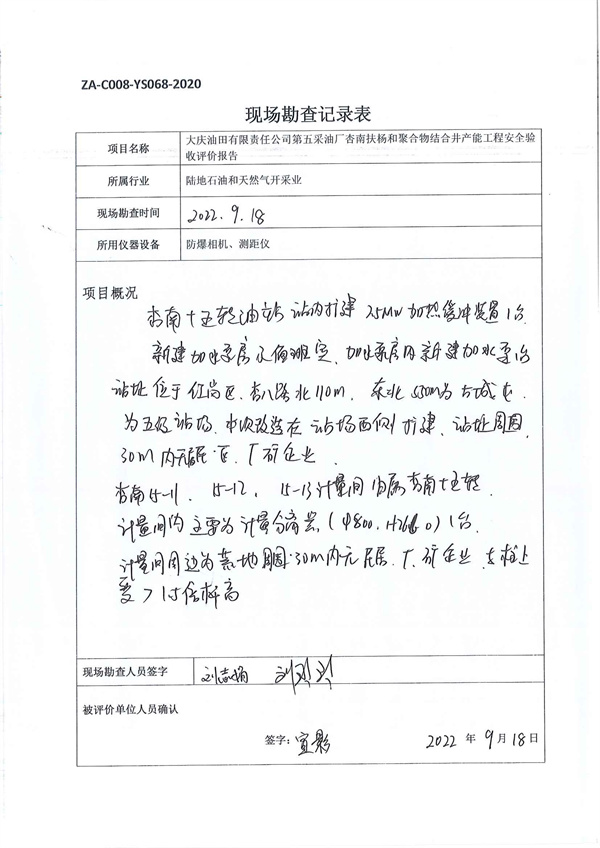 ZA-C008-YS068-2020
现场勘查记录表
项目名称
大庆油田有限责任公司第五采油厂杏南扶杨和聚合物结合井产能工程安全验
收评价报告
所属行业
陆地石油和天然气开采业
现场勘查时间
2022.9.18
所用仪器设备
防爆相机、测距仪
项目概况
杏南十五转油站 站内扩建 2.5MW 加热缓冲装置1台
新建加水泵房及值班室、加水泵房内新建加水泵台
站址位于红岗区、杏八路北110m、东北530m为
为五级站场、本次改造在站场西侧扩建、站址周围
30m内无居民区、厂矿企业
杏南15-11、15-12、15-13计量间归属杏南十五转
计量间内主要为计量分离器(Φ800、) 1台
计量间周边为周围30m内无居民、厂矿企业
现场勘查人员签字
刘志娟
被评价单位人员确认
签字:宣影
2022 年 9 月 18 日